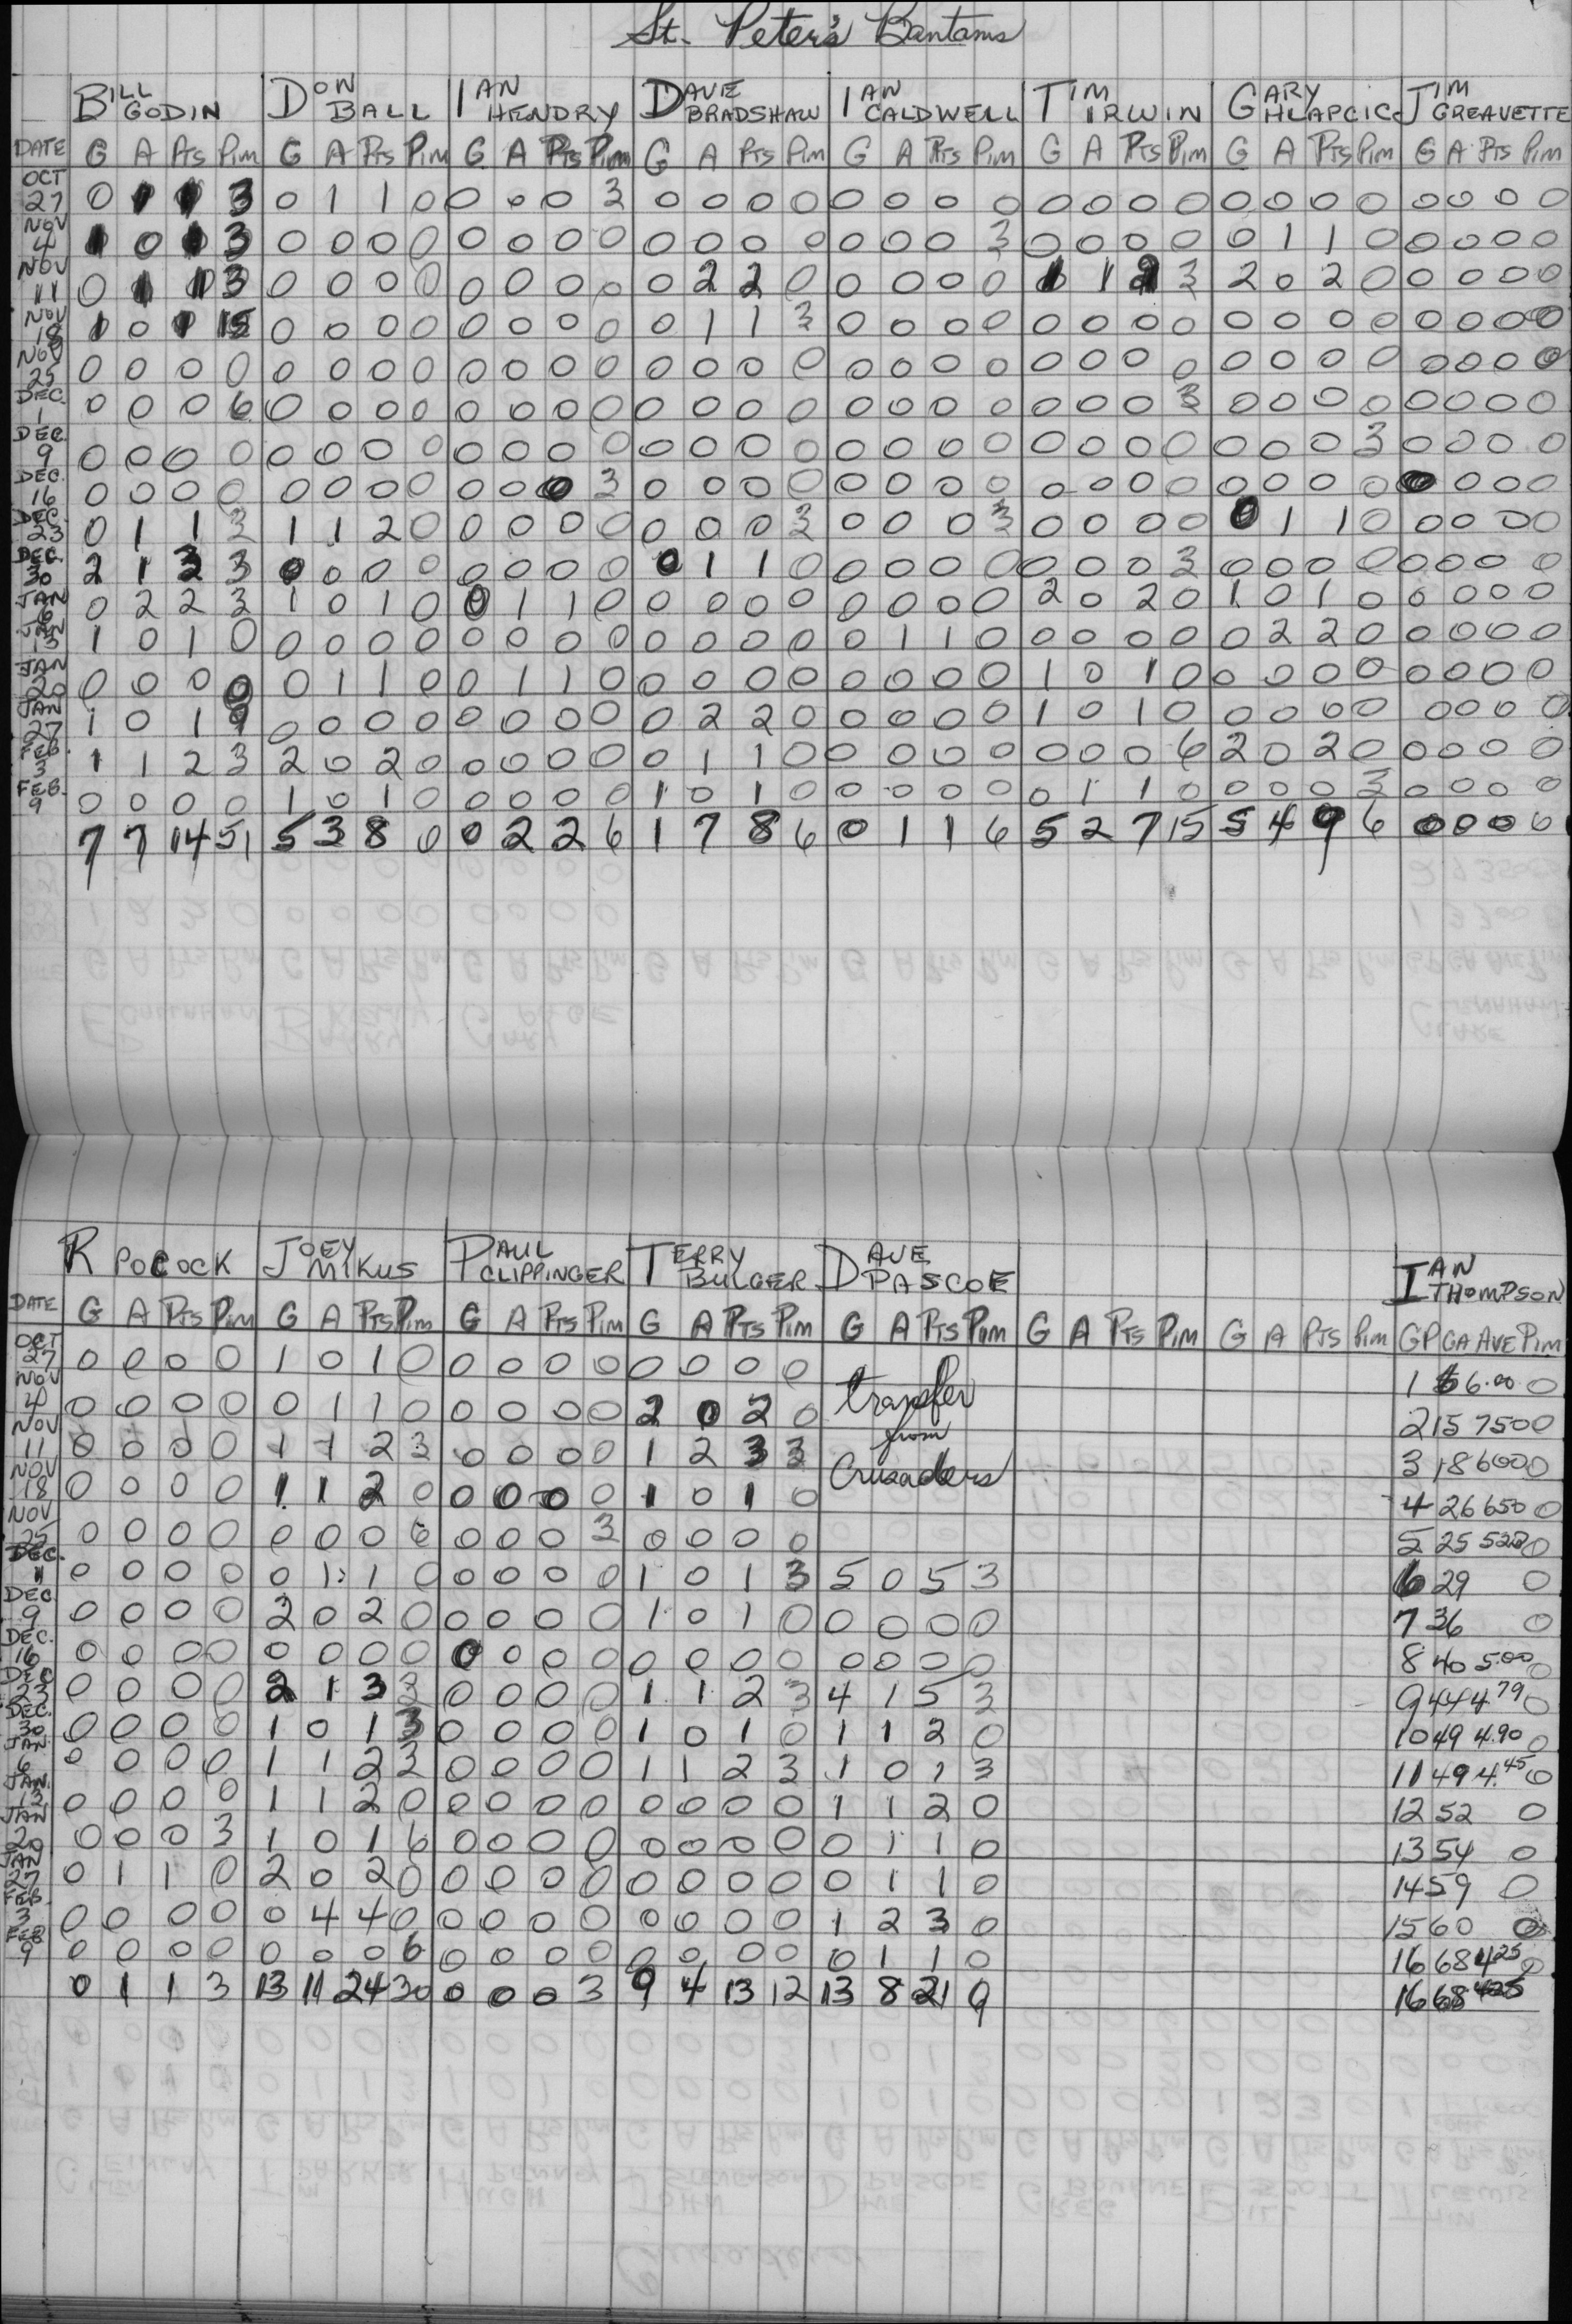 St. Peter's Bantams
BILL GODIN DON BALL IAN HENDRY DAVE BRADSHAW IAN CALDWELL TIM IRWIN GARY HLAPCIC JIM GREAVETTE
DATE G A PTS PIM G A PTS PIM G A PTS PIM G A PTS PIM G A PTS PIM G A PTS PIM G A PTS PIM G A PTS PIM
OCT 27 0 1 1 3 0 1 1 0 0 0 0 3 0 0 0 0 0 0 0 0 0 0 0 0 0 0 0 0 0 0 0 0
NOV 4 1 0 1 3 0 0 0 0 0 0 0 0 0 0 0 0 0 0 0 3 0 0 0 0 0 1 1 0 0 0 0 0
NOV 11 0 1 1 3 0 0 0 0 0 0 0 0 0 2 2 0 0 0 0 0 1 1 2 3 2 0 2 0 0 0 0 0
NOV 18 1 0 1 15 0 0 0 0 0 0 0 0 0 1 1 3 0 0 0 0 0 0 0 0 0 0 0 0 0 0 0 0
NOV 25 0 0 0 0 0 0 0 0 0 0 0 0 0 0 0 0 0 0 0 0 0 0 0 0 0 0 0 0 0 0 0 0
DEC. 1 0 0 0 6 0 0 0 0 0 0 0 0 0 0 0 0 0 0 0 0 0 0 0 3 0 0 0 0 0 0 0 0
DEC. 9 0 0 0 0 0 0 0 0 0 0 0 0 0 0 0 0 0 0 0 0 0 0 0 0 0 0 0 3 0 0 0 0
DEC. 16 0 0 0 0 0 0 0 0 0 0 0 3 0 0 0 0 0 0 0 0 0 0 0 0 0 0 0 0 0 0 0 0
DEC. 23 0 1 1 3 1 1 2 0 0 0 0 0 0 0 0 3 0 0 0 3 0 0 0 0 0 1 1 0 0 0 0 0
DEC. 30 2 1 3 3 0 0 0 0 0 0 0 0 0 1 1 0 0 0 0 0 0 0 0 3 0 0 0 0 0 0 0 0
JAN 6 0 2 2 3 1 0 1 0 0 1 1 0 0 0 0 0 0 0 0 0 2 0 2 0 1 0 1 0 0 0 0 0
JAN 13 1 0 1 0 0 0 0 0 0 0 0 0 0 0 0 0 0 1 1 0 0 0 0 0 0 2 2 0 0 0 0 0
JAN 20 0 0 0 0 0 1 1 0 0 1 1 0 0 0 0 0 0 0 0 0 1 0 1 0 0 0 0 0 0 0 0 0
JAN 27 1 0 1 9 0 0 0 0 0 0 0 0 0 2 2 0 0 0 0 0 1 0 1 0 0 0 0 0 0 0 0 0
FEB 3 1 1 2 3 2 0 2 0 0 0 0 0 0 1 1 0 0 0 0 0 0 0 0 6 2 0 2 0 0 0 0 0
FEB. 9 0 0 0 0 1 0 1 0 0 0 0 0 1 0 1 0 0 0 0 0 0 1 1 0 0 0 0 3 0 0 0 0
7 7 14 51 5 3 8 0 0 2 2 6 1 7 8 6 0 1 1 6 5 2 7 15 5 4 9 6 0 0 0 0
R POCOCK JOEY MIKUS PAUL CLIPPINGER TERRY BULGER DAVE PASCOE IAN THOMPSON
DATE G A PTS PIM G A PTS PIM G A PTS PIM G A PTS PIM G A PTS PIM G A PTS PIM G A PTS PIM GP GA AVE PIM
OCT 27 0 0 0 0 1 0 1 0 0 0 0 0 0 0 0 0 transfer 1 6 6.00 0
NOV 4 0 0 0 0 0 1 1 0 0 0 0 0 2 0 2 0 from 2 15 750 0
NOV 11 0 0 0 0 1 1 2 3 0 0 0 0 1 2 3 3 Crusaders 3 18 600 0
NOV 18 0 0 0 0 1 1 2 0 0 0 0 0 1 0 1 0 4 26 650 0
NOV 25 0 0 0 0 0 0 0 6 0 0 0 3 0 0 0 0 5 25 0
DEC. 1 0 0 0 0 0 1 1 0 0 0 0 0 1 0 1 3 5 0 5 3 6 29 0
DEC 9 0 0 0 0 2 0 2 0 0 0 0 0 1 0 1 0 0 0 0 0 7 36 0
DEC. 16 0 0 0 0 0 0 0 0 0 0 0 0 0 0 0 0 0 0 0 0 8 40 5.00 0
DEC 23 0 0 0 0 2 1 3 3 0 0 0 0 1 1 2 3 4 1 5 3 9 44 4.79 0
DEC. 30 0 0 0 0 1 0 1 3 0 0 0 0 1 0 1 0 1 1 2 0 10 49 4.90 0
JAN 6 0 0 0 0 1 1 2 3 0 0 0 0 1 1 2 3 1 0 1 3 11 49 4.45 0
JAN. 13 0 0 0 0 1 1 2 0 0 0 0 0 0 0 0 0 1 1 2 0 12 52 0
JAN 20 0 0 0 3 1 0 1 6 0 0 0 0 0 0 0 0 0 1 1 0 13 54 0
JAN 27 0 1 1 0 2 0 2 0 0 0 0 0 0 0 0 0 0 1 1 0 14 59 0
FEB. 3 0 0 0 0 0 4 4 0 0 0 0 0 0 0 0 0 1 2 3 0 15 60 0
FEB 9 0 0 0 0 0 0 0 6 0 0 0 0 0 0 0 0 0 1 1 0 16 68 4.25 0
0 1 1 3 13 11 24 30 0 0 0 3 9 4 13 12 13 8 21 9 16 68 4.25